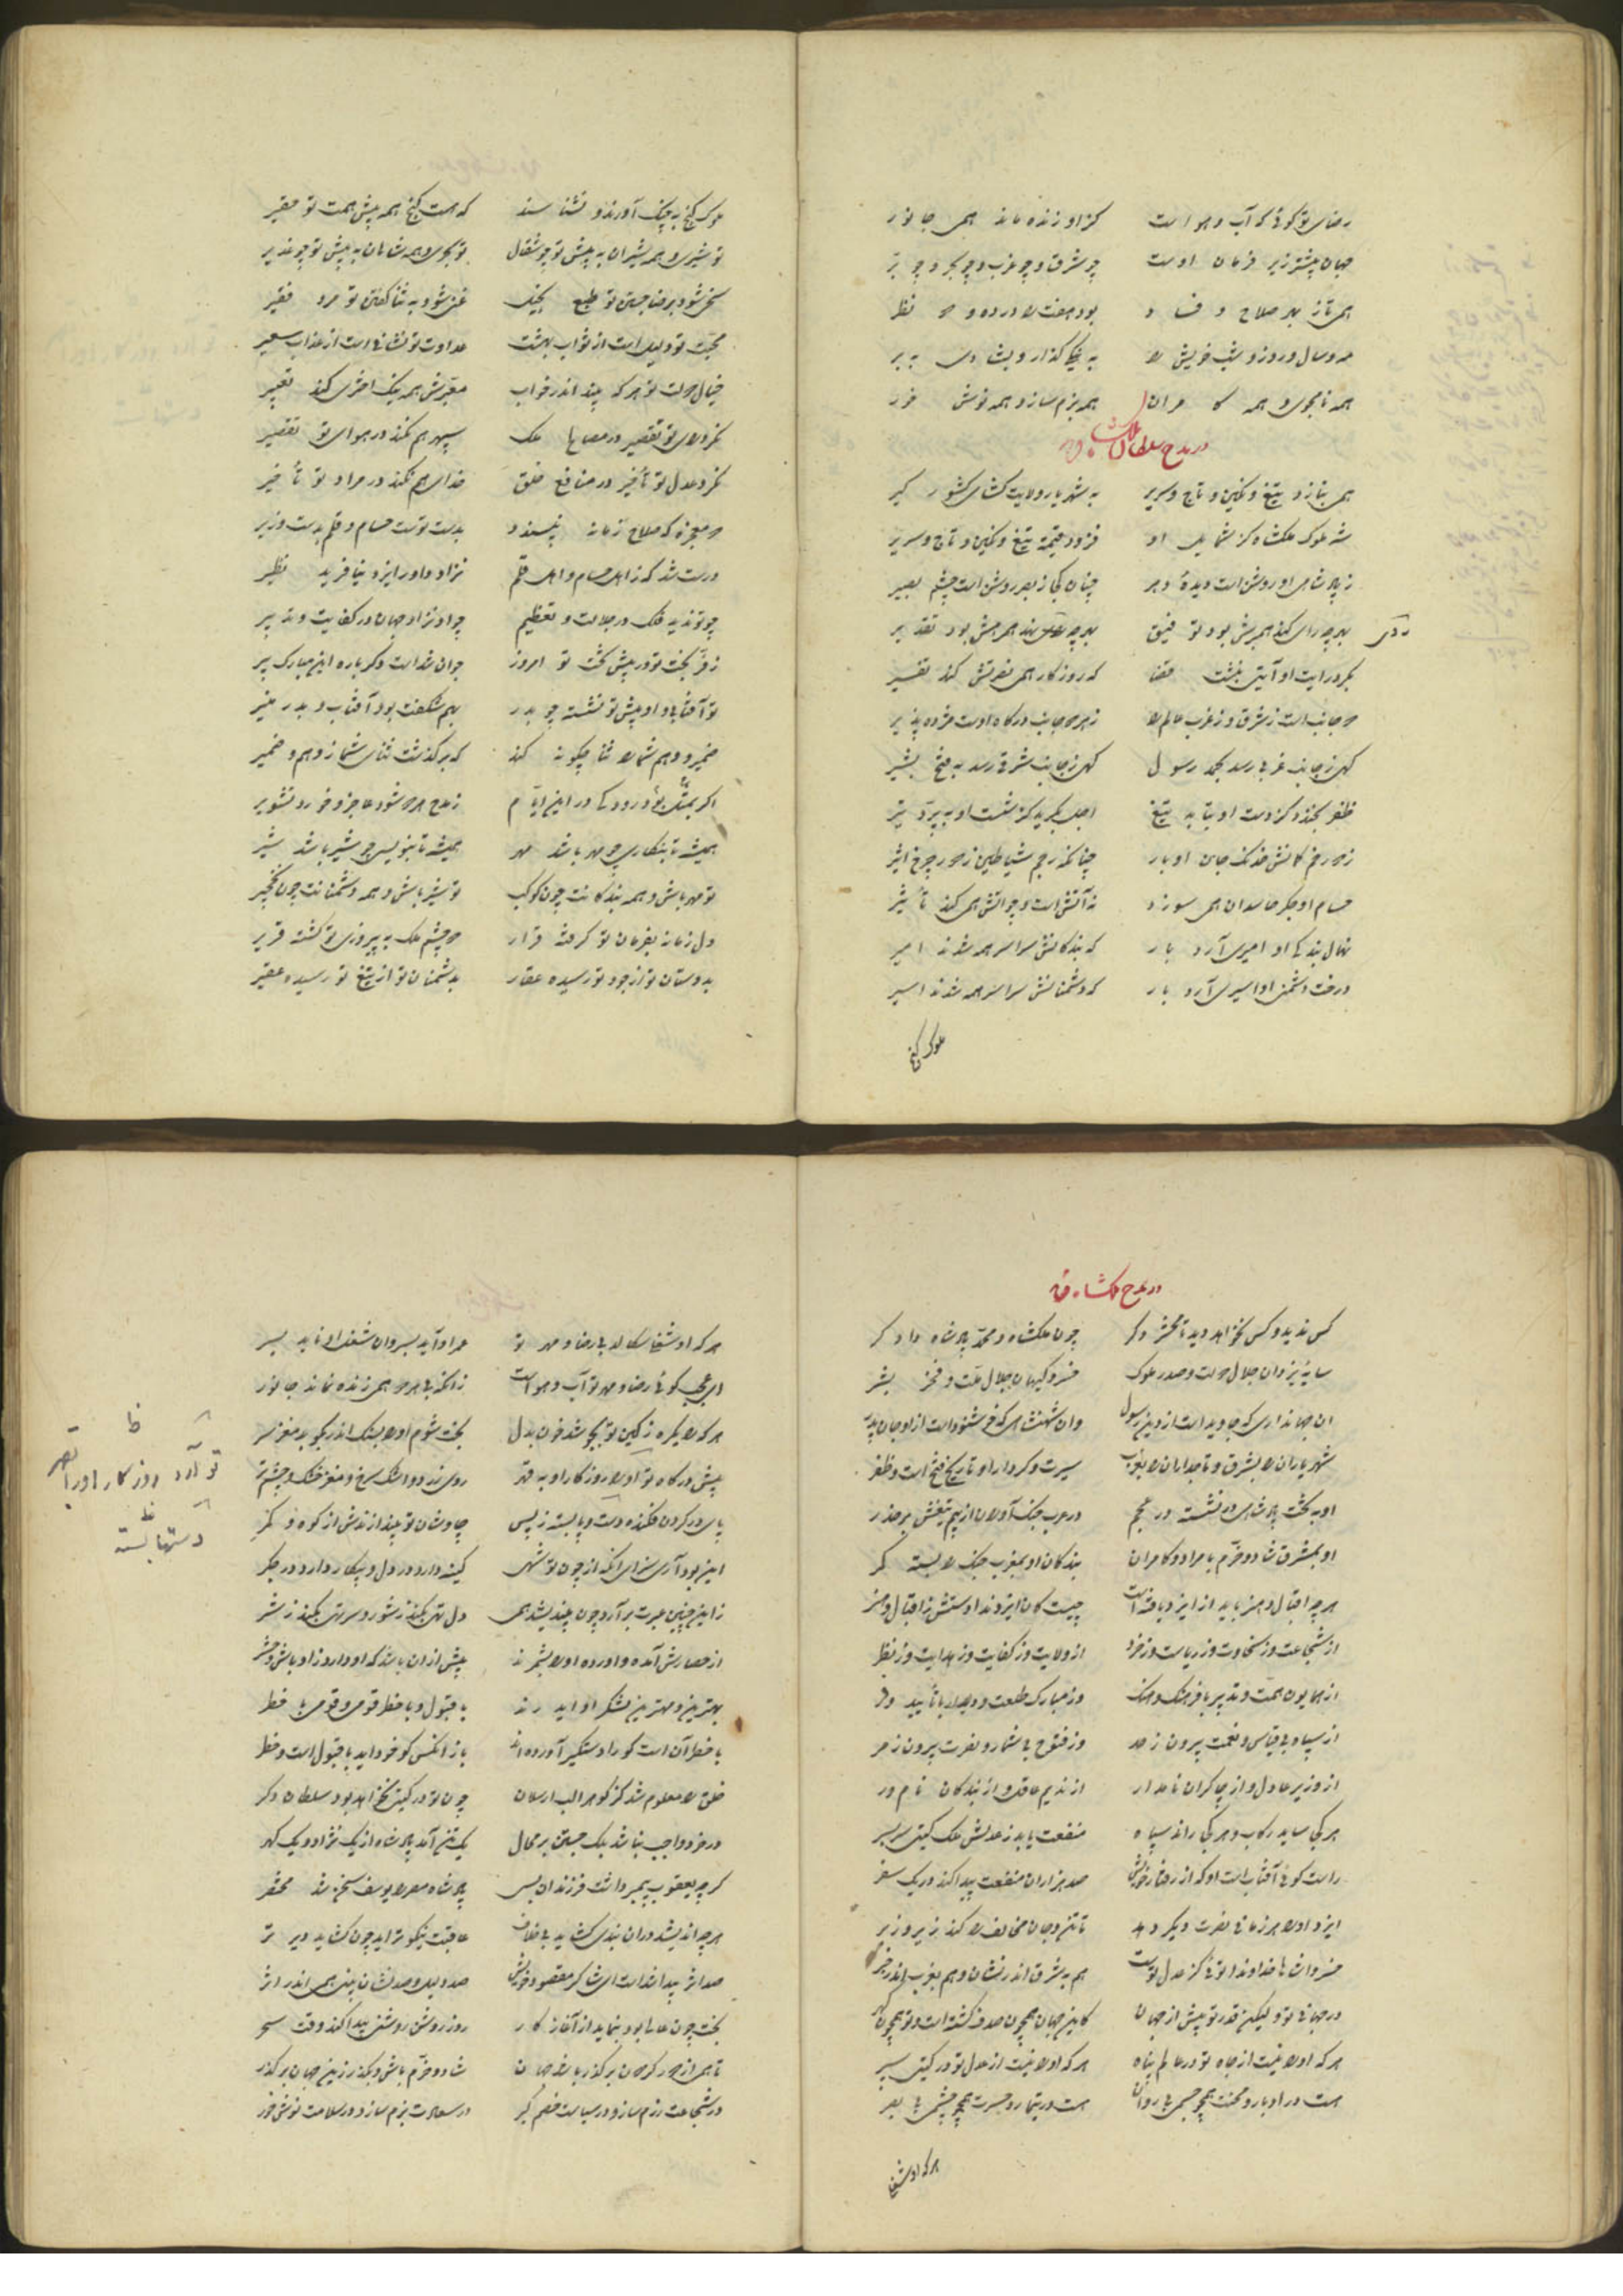 رضای تو گوئی که آب و هواست کزاو زنده ماند همی جانور
جهان بیشتر زیر فرمان اوست چو شرق و چو غرب و چو بحر و چو بر
همی تاز بهر صلاح و فساد بود هفت را در ده و دو نظر
مه و سال و روز و شب خویش را به نیکی گذار و بشادی ببر
همه نامجوی و همه کامران همه بزم ساز و همه نوش خور
در مدح سلطان ملکشاه
همی بنازد تیغ و نگین و تاج و سریر به شهریار ولایت گشای کشور گیر
شه ملوک ملکشاه کز شمایل او فزود قیمت تیغ و نگین و تاج و سریر
ز پادشاهی او روشن است دیدهٔ دهر چنان کجا ز بصر روشن است چشم بصیر
بهرچه رای کند همبرش بود توفیق بهرچه روی نهد همرهش بود تقدیر
مگر در آیت او آیتی نبشت قضا که روزگار همی نصرتش کند تفسیر
دو جانب است ز شرق و ز غرب عالم را ز هر دو جانب درگاه اوست مژده پذیر
گهی ز جانب غربی رسد بحمد رسول گهی ز جانب شرقی رسد به فتح بشیر
ظفر بخندد کز دست او بتابد تیغ اجل بگرید کز شست او بپرد تیر
ز دو رخ کمانش خدنگ جان اوبار چنانکه رجم شیاطین ز دور چرخ اثیر
حسام او جگر حاسدان همی سوزد نه آتش است و چو آتش همی کند تأثیر
نهال بندگی او امیری آرد بار که بندگانش سراسر همه شدند امیر
درخت دشمنی او اسیری آرد بار که دشمنانش سراسر همه شدند اسیر
ملوک گنج
ملوک گنج به چنگ آورند و نشناسند که هست گنج همه پیش همت تو حقیر
تو شیری و همه شیران به پیش تو چو شغال تو بحری و همه شاهان به پیش تو چو غدیر
سخی شود به رضا جستن تو طبع بخیل غنی شود به ثنا گفتن تو مرد فقیر
محبت تو دلیل است از ثواب بهشت عداوت تو نشانی است از عذاب سعیر
خیال دولت تو هرکه بیند اندر خواب معبرش همه نیک اختری کند تعبیر
نکرد رای تو تقصیر در مصالح ملک سپهر هم نکند در هوای تو تقصیر
نکرد عدل تو تأخیر در منافع خلق خدای هم نکند در مراد تو تأخیر
دو معجزه که صلاح زمانه بپسندد بدست توست حسام و قلم بدست وزیر
درست شد که ز اهل حسام و اهل قلم نژاد داور ایزد نیافرید نظیر
چو تو ندید فلک در جلالت و تعظیم چو او نزاد جهان در کفایت و تدبیر
ز فر بخت تو در پیش تخت تو امروز جوان شدست دگرباره این مبارک پیر
تو آفتابی و او پیش تو نشسته چو بدر بهم شگفت بود آفتاب و بدر منیر
ضمیر و وهم شما را ثنا چگونه کند که برگذشت ثنای شما ز وهم و ضمیر
اگر بمثل بودی رودکی در این ایام ز مدح هر دو شود عاجز و خورد تشویر
همیشه تا بنگاری چو مهر باشد مهر همیشه تا بنویسی چو شیر باشد شیر
تو مهر باش و همه بندگانت چون کوکب تو شیر باش و همه دشمنانت چون نخجیر
دل زمانه بفرمان تو گرفته قرار دو چشم ملک به پیروزی تو گشته قریر
بدوستان تو از جود تو رسیده عقار بدشمنان تو از تیغ تو رسیده عقیر
در مدح ملکشاه
کس ندید و کس نخواهد دید تا محشر دگر چون ملکشاه محمد پادشاه دادگر
سایهٔ یزدان جلال دولت و صدر ملوک خسرو گیهان جلال ملت و فخر بشر
آن جهانداری که جاوید است از او دین رسول وان شهنشاهی که خوشنود است از او جان پدر
شهریاران را بشرق و تاجداران را بغرب سیرت و کردار او تاریخ فتح است و ظفر
او به تخت پادشاهی برنشسته در عجم در عرب جنگ آوران از بیم تیغش بر حذر
او بمشرق شاد و خرم بامراد و کامران بندگان او بمغرب جنگ را بسته کمر
هرچه اقبال و هنر باید از ایزد یافته است چیست کان ایزد نداداستش ز اقبال و هنر
از شجاعت وز سخاوت وز ریاست وز خرد از ولایت وز کفایت وز هدایت وز نظر
از همایون همت و تدبیر با فرهنگ و هنگ وز مبارک طلعت و دیدار با تأیید و فر
از سپاه بی قیاس و نعمت بیرون ز حد وز فتوح بی شمار و نصرت بیرون ز مر
از وزیر عادل و از چاکران نامدار از ندیم عاقل و از بندگان نامور
هرکجا ساید رکاب و هرکجا راند سپاه منفعت یابد ز عدلش ملک گیتی سربسر
راست گوئی آفتاب است او که از رفتار خویش صد هزاران منفعت پیدا کند در یک سفر
ایزد او را هر زمانی نصرت دیگر دهد تا تن و جان مخالف را کند زیر و زبر
خسروا شاها خداوندا توئی کز عدل توست هم به شرق اندر نشان و هم بغرب اندر خبر
در جهانی تو و لیکن قدر تو بیش از جهان کاین جهان همچون صدف گشته است و تو همچون گهر
هرکه او را نیست از جاه تو در عالم پناه هرکه او را نیست از عدل تو در گیتی سپر
هست در ادبار و محنت همچو جسمی بی روان هست در تیمار و حسرت همچو چشمی بی بصر
هرکه او شغل
هرکه او شغلی سگالد بی رضا و مهر تو عمر او آید بسر وان شغل او ناید بسر
ای عجب گوئی رضا و مهر تو آب و هواست زانکه بی هر دو همی زنده نماند جانور
هرکه را یکره ز کین تو بجوشد خون بدل بخت شوم او را بسنگ اندر بکوبد مغز سر
پیش درگاه تو آورد روزگار او را به قهر روی زرد و اشک سرخ و مغز خشک و چشم تر
پای در گردن فکنده دست و پا بسته ز پس چاوشان تو بیندازندش از کوه و کمر
این بود آری سزای آنکه از چون تو شهی کینه دارد در دل و پیکار دارد در جگر
زین چنین عبرت برآرد چون بیندیشد همی دل تهی بکند ز شور و سر تهی بکند ز شر
از حصارش آمده و آورده او را بشمرند پیش از آن باشد که او دارد ز اوباش و حشر
بهترین و مهترین لشکر او اید رند با قبول و با خطر قومی و قومی با خطر
با خطر آن است کو را دستگیر آورده اند باز آنکس کو خود آید با قبول است و خطر
خلق را معلوم شد کز گوهر الب ارسلان چون تو در گیتی نخواهد بود سلطان دگر
در خرد واجب نباشد یک جستن بر محال یک تن آمد پادشاه از یک نژاد و یک گهر
گرچه یعقوب پیمبر داشت فرزندان بسی پادشاه مصر را یوسف سخن شد مختصر
هرچه اندیشد در آن بندی گشاید بی خلاف عاقبت نیکوتر آید چون گشاید دیرتر
صد اثر پیدا شداست ای شاه کز مقصود خویش صد دلیل و صد نشان بینی همی اندر اثر
بخت چون عالی بود بنماید از آغاز کار روز روشن روشنی پیدا کند وقت سحر
تا همی از دور گردون برگذر باشد جهان شاد و خرم باش و بگذر زین جهان برگذر
در شجاعت رزم ساز و در سیاست خصم گیر در سعادت بزم ساز و در سلامت نوش خور
تو آرد روزگار او را بقهر
دستها بسته